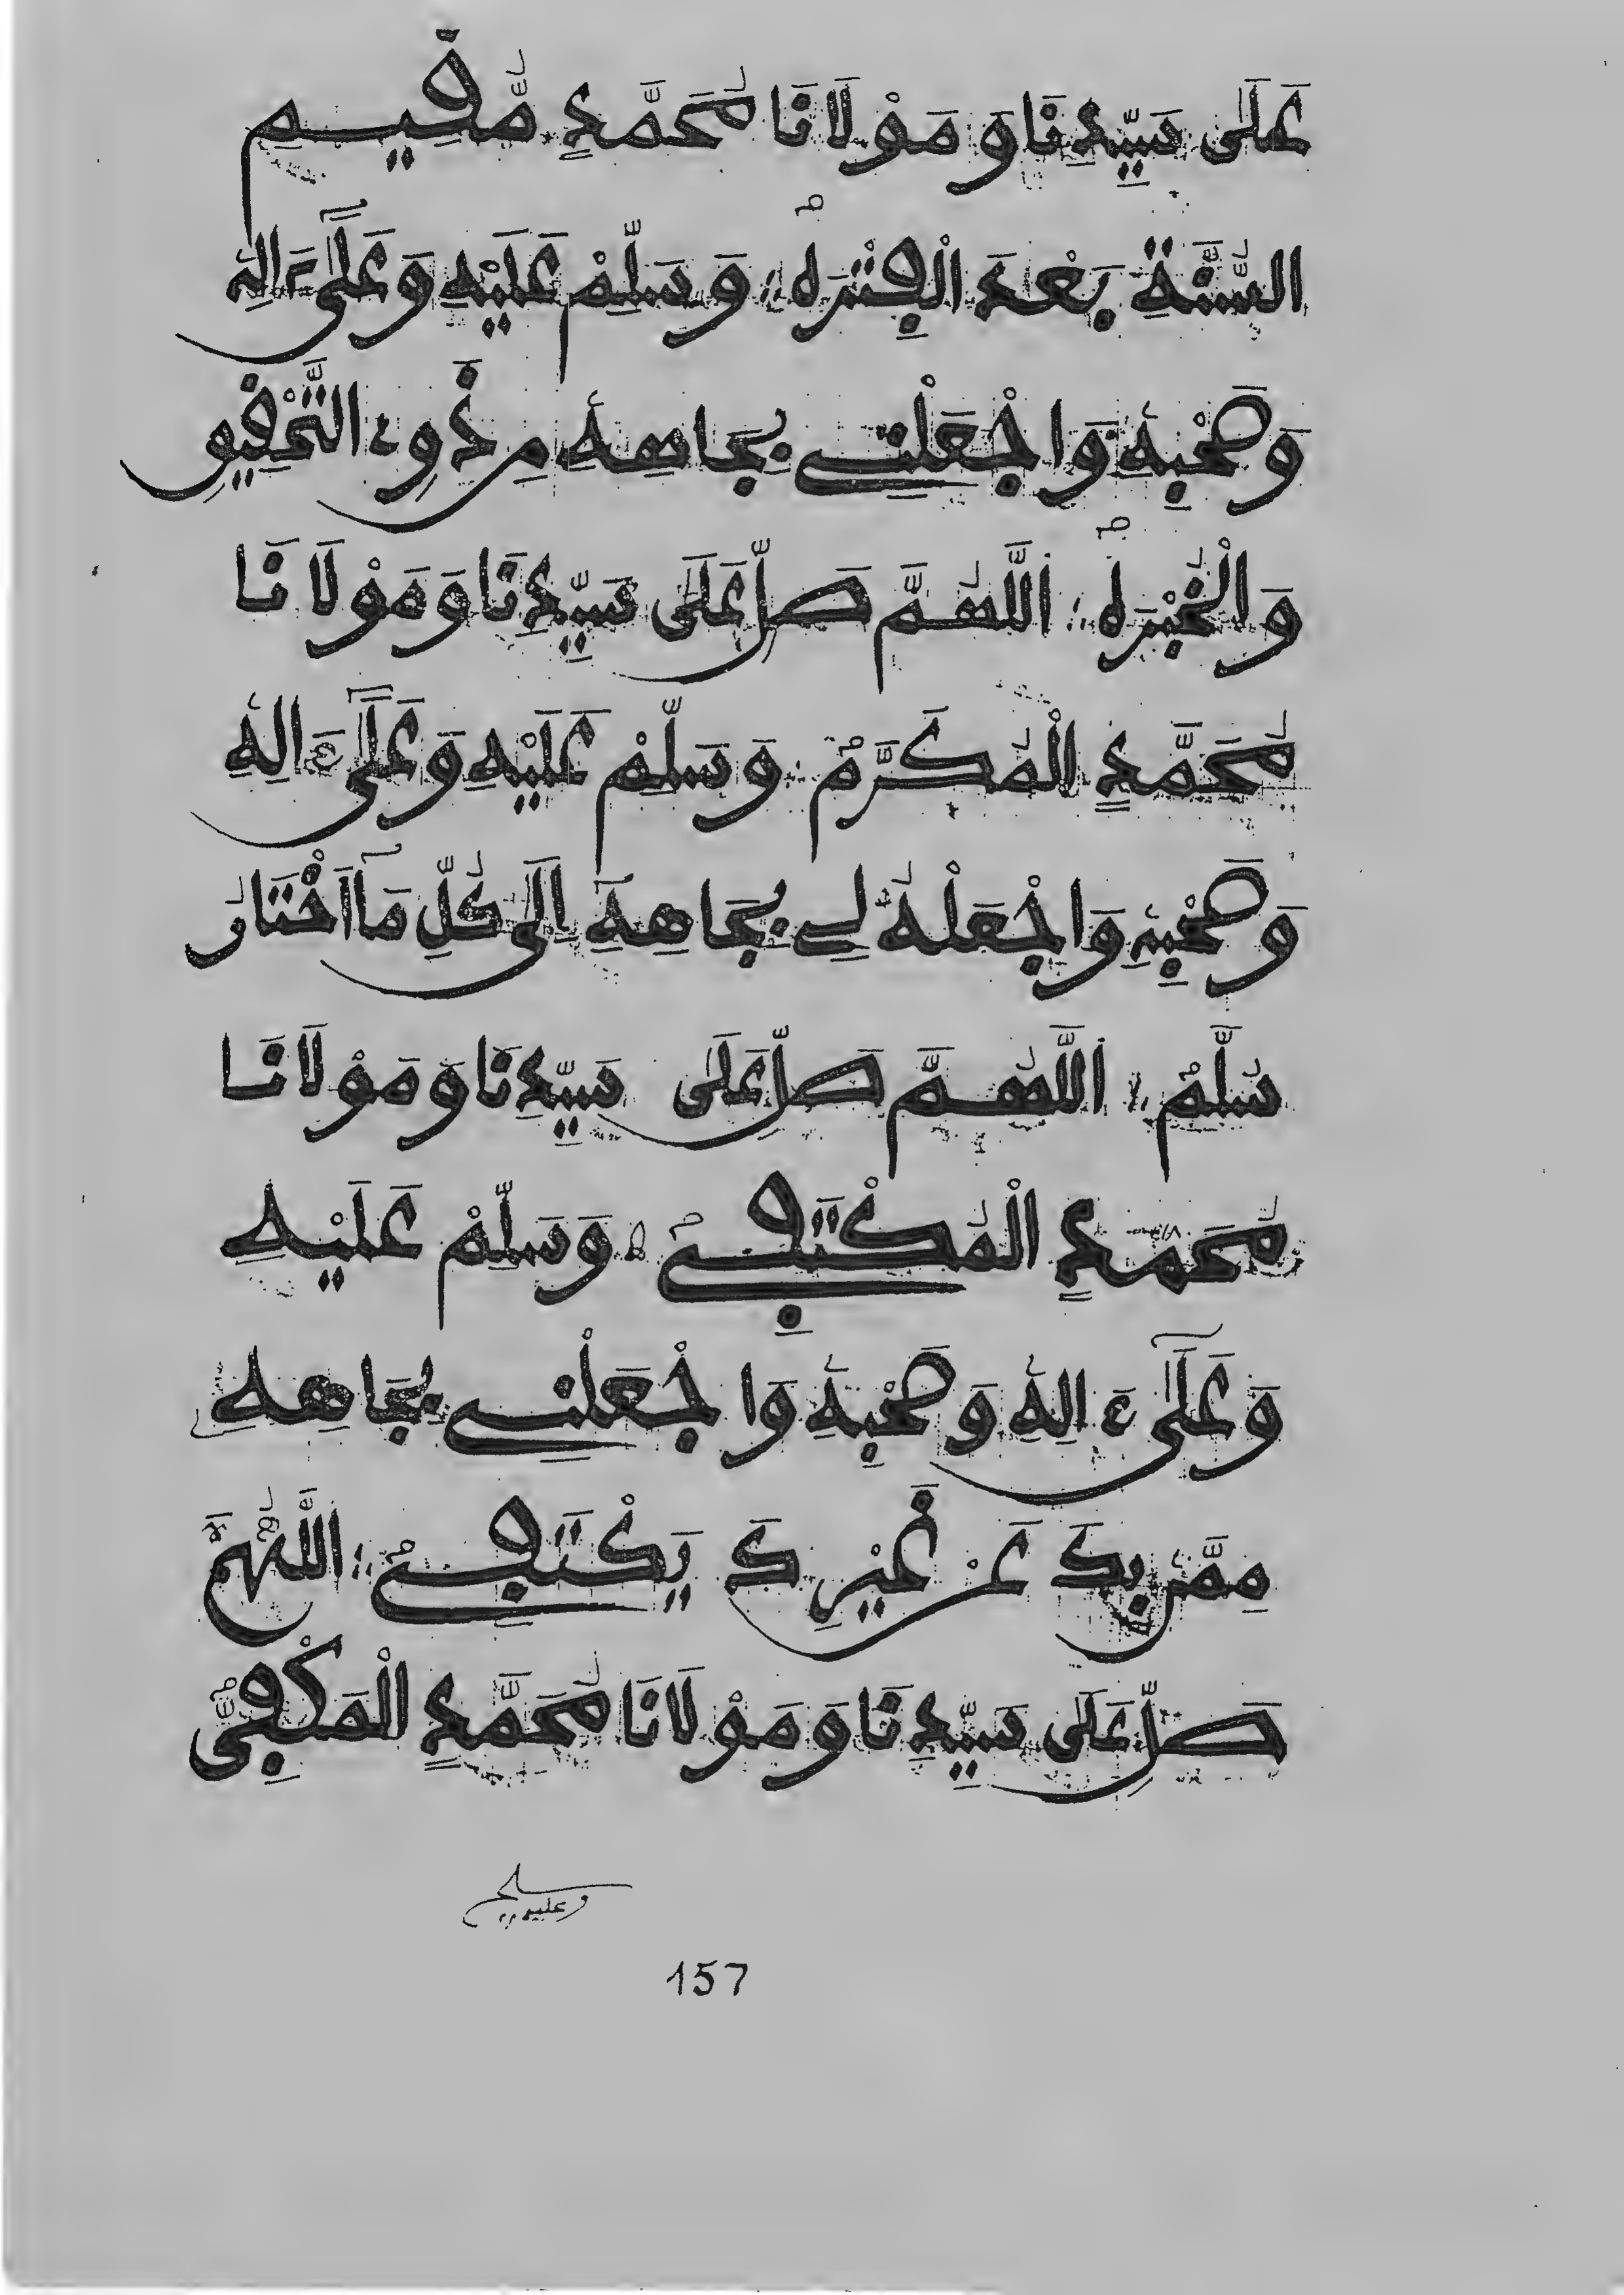 عَلَى سَيِّدِنَا وَمَوْلَانَا مُحَمَّدٍ مُّقِيمِ
السُّنَّةِ بَعْدَ الْفِتْرَهْ وَسَلِّمْ عَلَيْهِ وَعَلَى ءَالِهِ
وَصَحْبِهِ وَاجْعَلْنِي بِجَاهِهِ مِن ذَوِي التَّحْقِيقِ
وَالْخُبْرَهْ اللَّهُمَّ صَلِّ عَلَى سَيِّدِنَا وَمَوْلَانَا
مُحَمَّدٍ الْمُكَرَّمْ وَسَلِّمْ عَلَيْهِ وَعَلَى ءَالِهِ
وَصَحْبِهِ وَاجْعَلْهُ لِي بِجَاهِهِ إِلَى كُلِّ مَا اخْتَارَ
سُلَّمْ اللَّهُمَّ صَلِّ عَلَى سَيِّدِنَا وَمَوْلَانَا
مُحَمَّدٍ الْمُكْتَفِي وَسَلِّمْ عَلَيْهِ
وَعَلَى ءَالِهِ وَصَحْبِهِ وَاجْعَلْنِي بِجَاهِهِ
مِمَّن بِكَ عَنْ غَيْرِكَ يَكْتَفِي اللَّهُمَّ
صَلِّ عَلَى سَيِّدِنَا وَمَوْلَانَا مُحَمَّدٍ الْمَكْفِيِّ
وسلم عليه
157